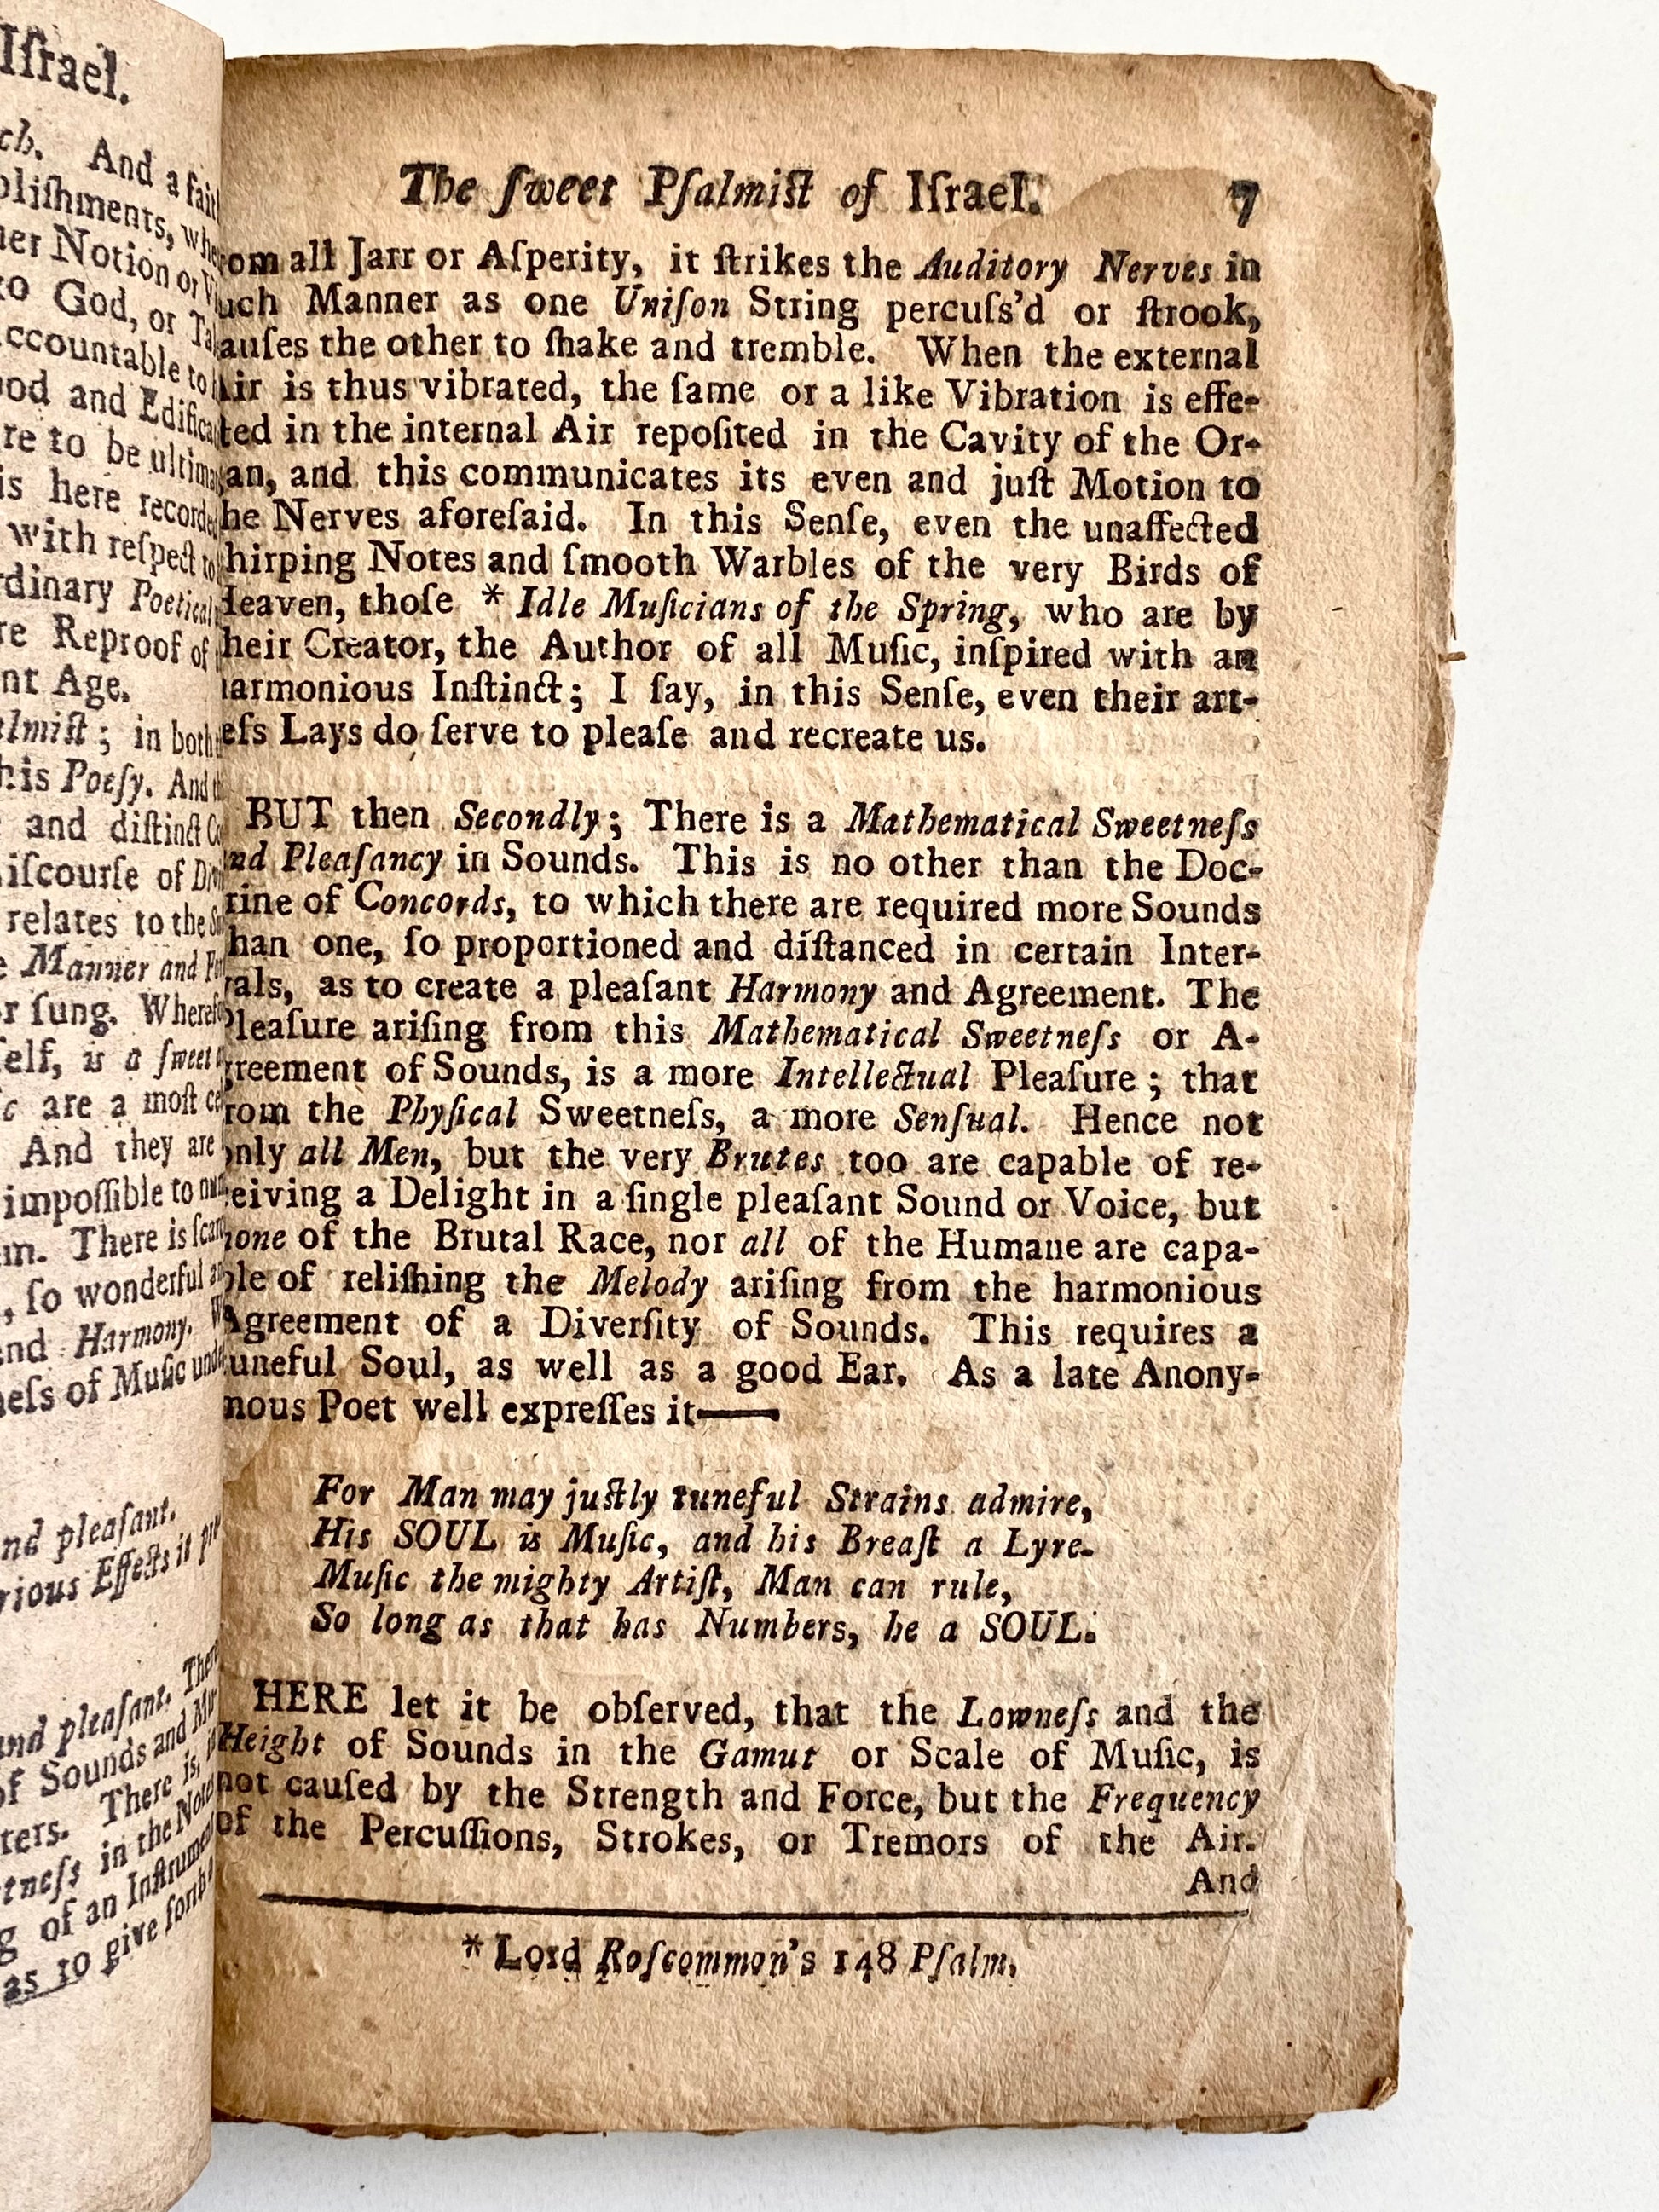 Iſrael.
ch. And a fait
bliſhments, whe
er Notion or Vi
to God, or Ta
ccountable to h
ood and Edifica
re to be ultima
is here recorde
with reſpect to
rdinary Poetical
re Reproof of
nt Age.
almiſt; in both
his Poeſy. And th
and diſtinct Co
iſcourſe of Div
relates to the Su
e Manner and For
r ſung. Wherefo
ſelf, is a ſweet
c are a moſt ce
And they are
impoſſible to
m. There is ſcar
, ſo wonderful an
and Harmony. W
neſs of Muſic unde
nd pleaſant.
rious Effects it pr
and pleaſant. There
of Sounds and Mu
ters. There is,
tneſs in the Note
g of an Inſtrumen
as to give forth
The ſweet Pſalmiſt of Iſrael. 7
rom all Jarr or Aſperity, it ſtrikes the Auditory Nerves in
uch Manner as one Uniſon String percuſs'd or ſtrook,
auſes the other to ſhake and tremble. When the external
Air is thus vibrated, the ſame or a like Vibration is effe-
ted in the internal Air repoſited in the Cavity of the Or-
an, and this communicates its even and juſt Motion to
he Nerves aforeſaid. In this Senſe, even the unaffected
hirping Notes and ſmooth Warbles of the very Birds of
Heaven, thoſe * Idle Muſicians of the Spring, who are by
heir Creator, the Author of all Muſic, inſpired with an
harmonious Inſtinct; I ſay, in this Senſe, even their art-
eſs Lays do ſerve to pleaſe and recreate us.
BUT then Secondly; There is a Mathematical Sweetneſs
and Pleaſancy in Sounds. This is no other than the Doc-
trine of Concords, to which there are required more Sounds
than one, ſo proportioned and diſtanced in certain Inter-
vals, as to create a pleaſant Harmony and Agreement. The
Pleaſure ariſing from this Mathematical Sweetneſs or A-
greement of Sounds, is a more Intellectual Pleaſure; that
rom the Phyſical Sweetneſs, a more Senſual. Hence not
only all Men, but the very Brutes too are capable of re-
ceiving a Delight in a ſingle pleaſant Sound or Voice, but
none of the Brutal Race, nor all of the Humane are capa-
ble of reliſhing the Melody ariſing from the harmonious
Agreement of a Diverſity of Sounds. This requires a
tuneful Soul, as well as a good Ear. As a late Anony-
mous Poet well expreſſes it—
For Man may juſtly tuneful Strains admire,
His SOUL is Muſic, and his Breaſt a Lyre.
Muſic the mighty Artiſt, Man can rule,
So long as that has Numbers, he a SOUL.
HERE let it be obſerved, that the Lowneſs and the
Height of Sounds in the Gamut or Scale of Muſic, is
not cauſed by the Strength and Force, but the Frequency
of the Percuſſions, Strokes, or Tremors of the Air.
And
* Lord Roſcommon's 148 Pſalm.